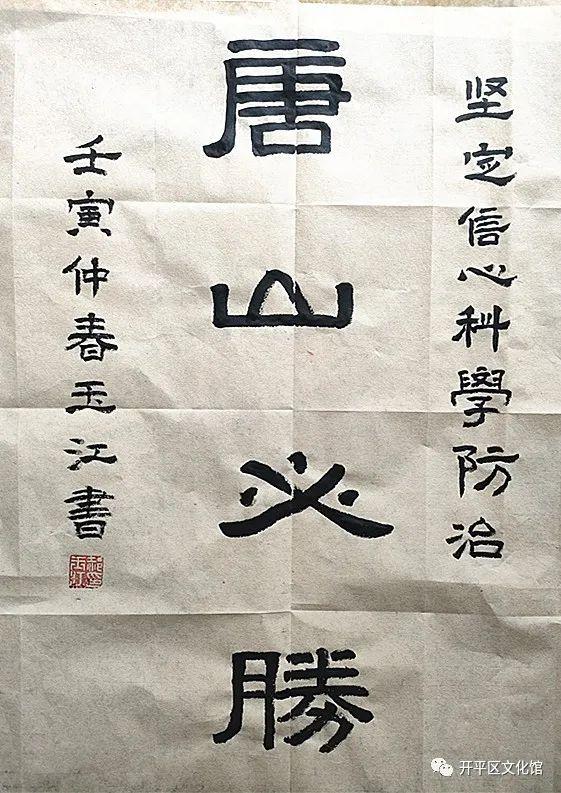 坚定信心科學防治
唐山必勝
壬寅仲春玉江書
开平区文化馆